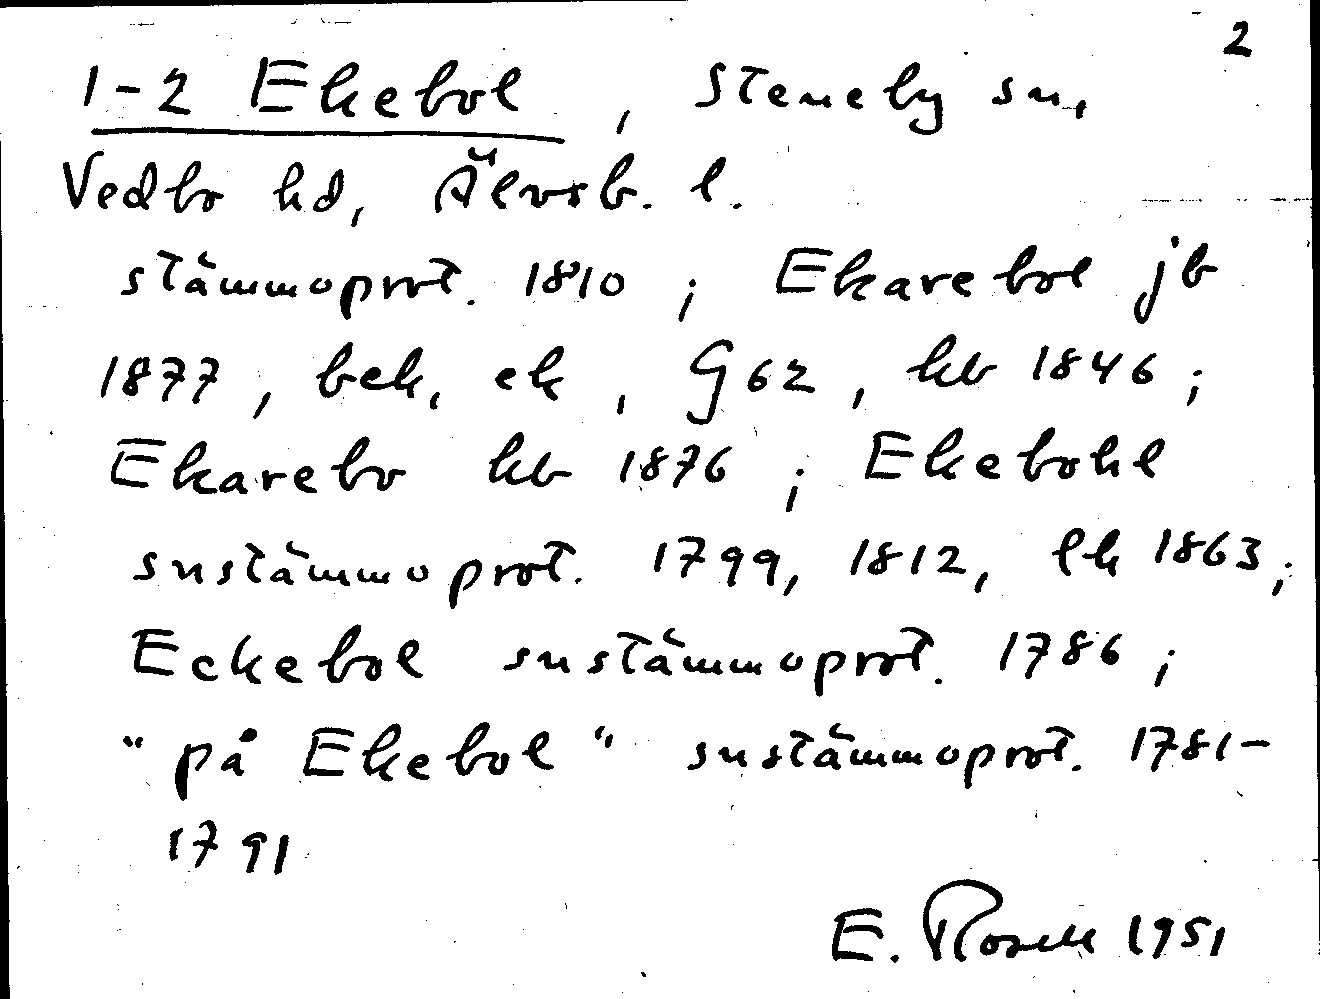 2
1-2 Ekebol, Steneby sn,
Vedbo hd, Älvsb. l.
stämmoprot. 1810; Ekarebol jb
1877, bek, ek, G62, kb 1846;
Ekarebo kb 1876; Ekebohl
snstämmoprot. 1799, 1812, lk 1863;
Eckebol snstämmoprot. 1786;
"på Ekebol" snstämmoprot. 1781-
1791
E. Rosell 1951